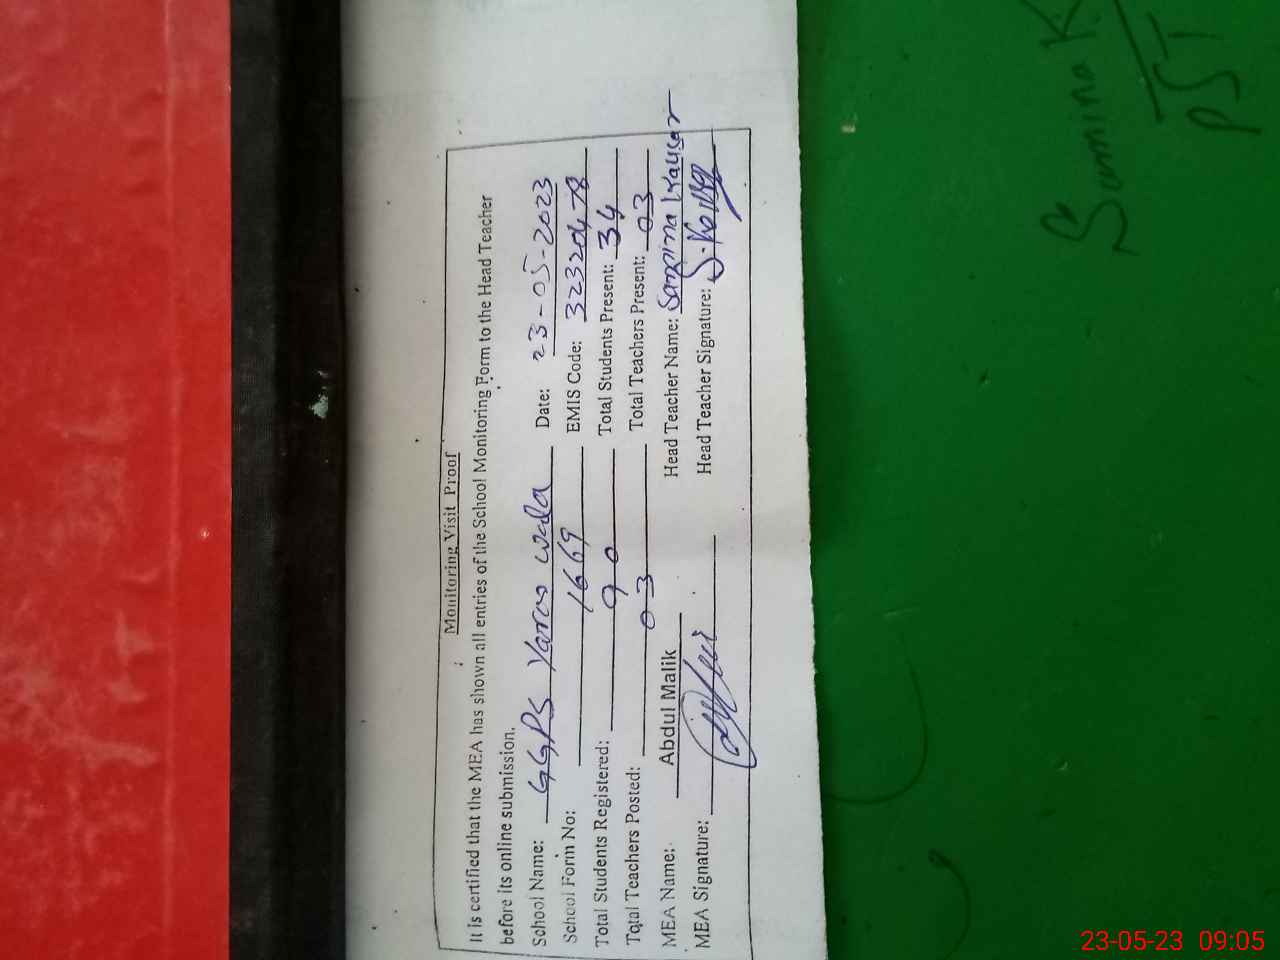 Monitoring Visit Proof
It is certified that the MEA has shown all entries of the School Monitoring Form to the Head Teacher
before its online submission.
School Name: GGPS Yaroo wala Date: 23-05-2023
School Form No: 1669 EMIS Code: 32320478
Total Students Registered: 90 Total Students Present: 34
Total Teachers Posted: 03 Total Teachers Present: 03
MEA Name: Abdul Malik Head Teacher Name: Samina Kausar
MEA Signature: Head Teacher Signature:
Samina K.
PST
23-05-23 09:05